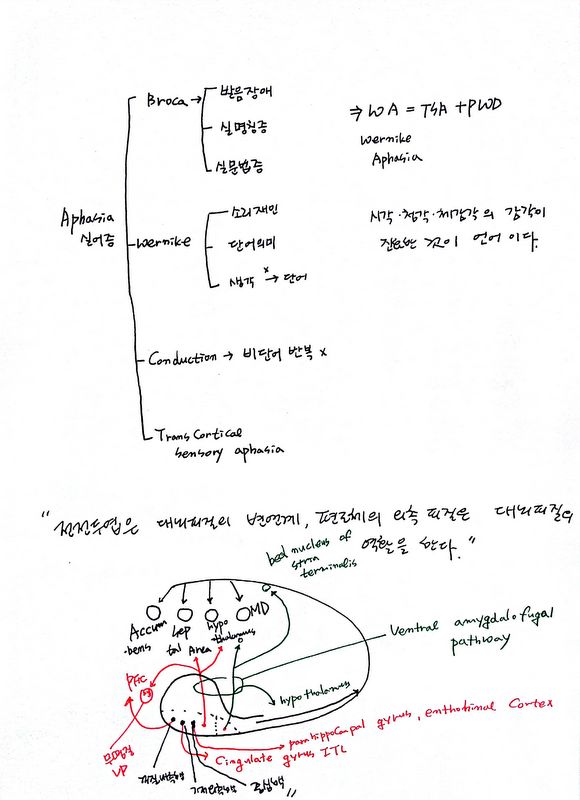 Broca → 발음장애
실명칭증
실문법증
⇒ WA = TSA + PWD
Wernike
Aphasia
Aphasia
실어증
Wernike
소리재인
단어의미
생각 →× 단어
시각·청각·체감각의 감각이
진화한 것이 언어이다.
Conduction → 비단어 반복 ×
Trans Cortical
sensory aphasia
"전전두엽은 대뇌피질의 변연계, 편도체의 외측 피질은 대뇌피질의
역할을 한다."
bed nucleus of
stria
terminalis
Accum
-bens
Sep
tal Area
hypo
-thalamus
MD
Ventral amygdalofugal
pathway
PFC
hypothalamus
parahippocampal gyrus, enthorhinal Cortex
Cingulate gyrus ITL
무명질
VP
"